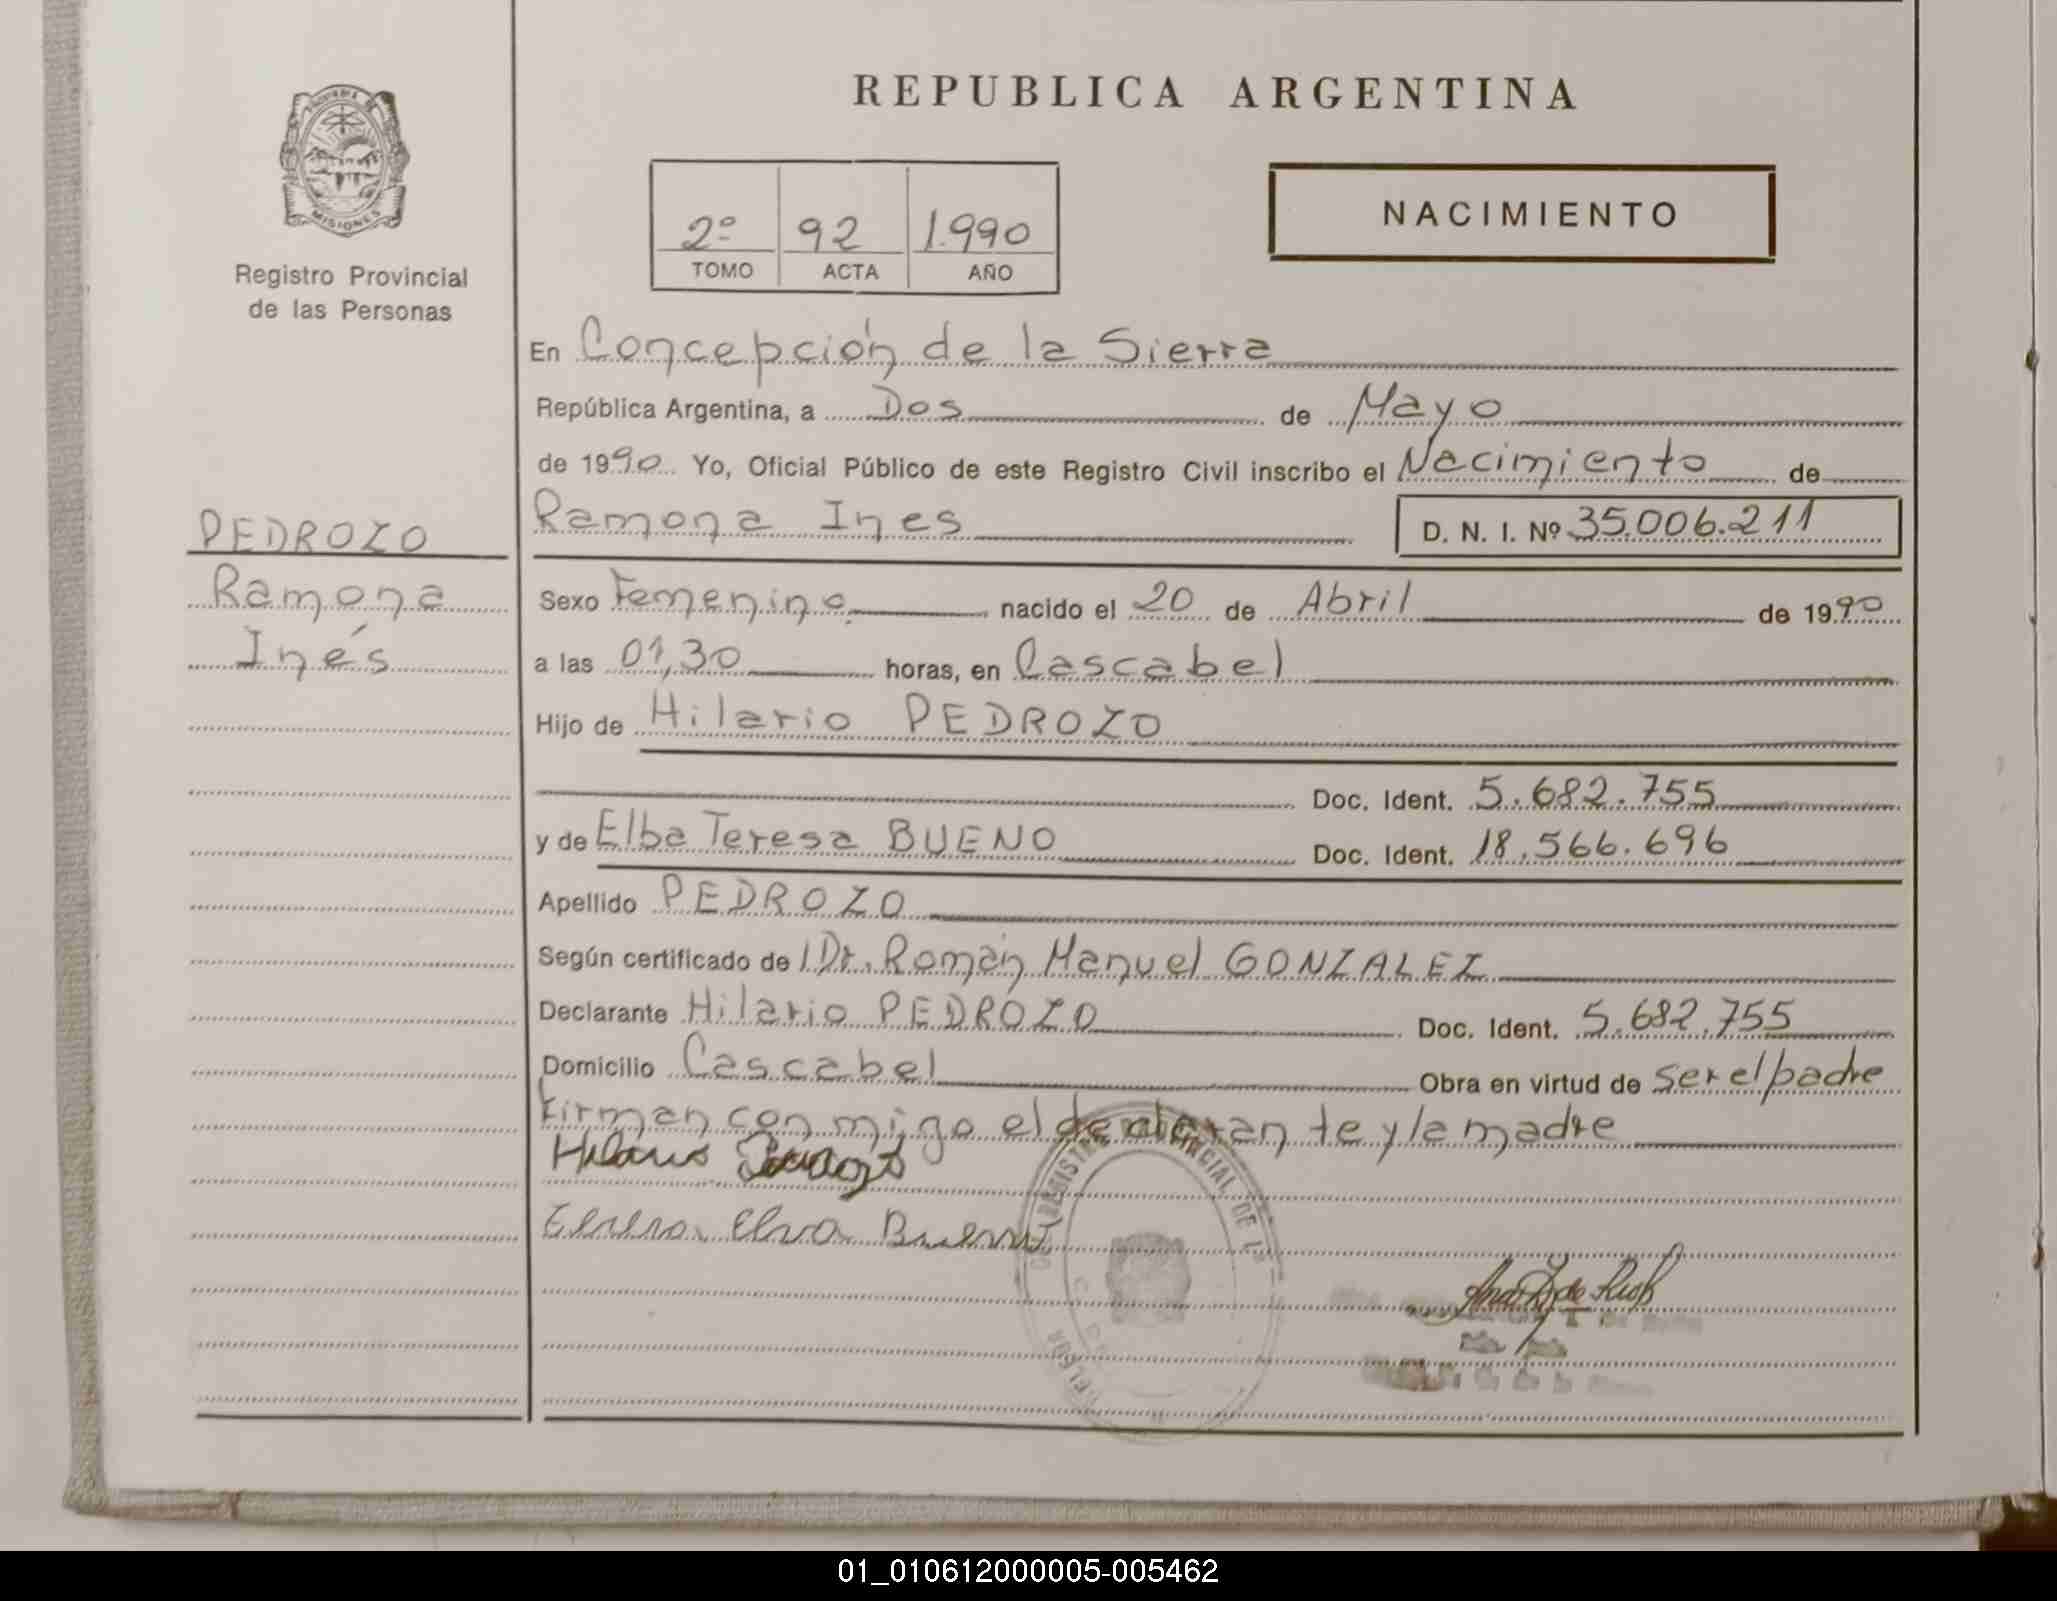 REPUBLICA ARGENTINA
MISIONES
Registro Provincial
de las Personas
2º 92 1.990
TOMO ACTA AÑO
NACIMIENTO
En Concepción de la Sierra
República Argentina, a Dos de Mayo
de 1990 Yo, Oficial Público de este Registro Civil inscribo el Nacimiento de
PEDROZO
Ramona
Inés
Ramona Ines D. N. I. Nº 35.006.211
Sexo Femenino nacido el 20 de Abril de 1990
a las 01,30 horas, en Cascabel
Hijo de Hilario PEDROZO
Doc. Ident. 5.682.755
y de Elba Teresa BUENO Doc. Ident. 18.566.696
Apellido PEDROZO
Según certificado de l Dr. Román Manuel GONZALEZ
Declarante Hilario PEDROZO Doc. Ident. 5.682.755
Domicilio Cascabel Obra en virtud de ser el padre
Firman con migo el declarante y la madre
Hilario Pedrozo
Teresa Elva Bueno
PROVINCIAL DE LA
01_010612000005-005462